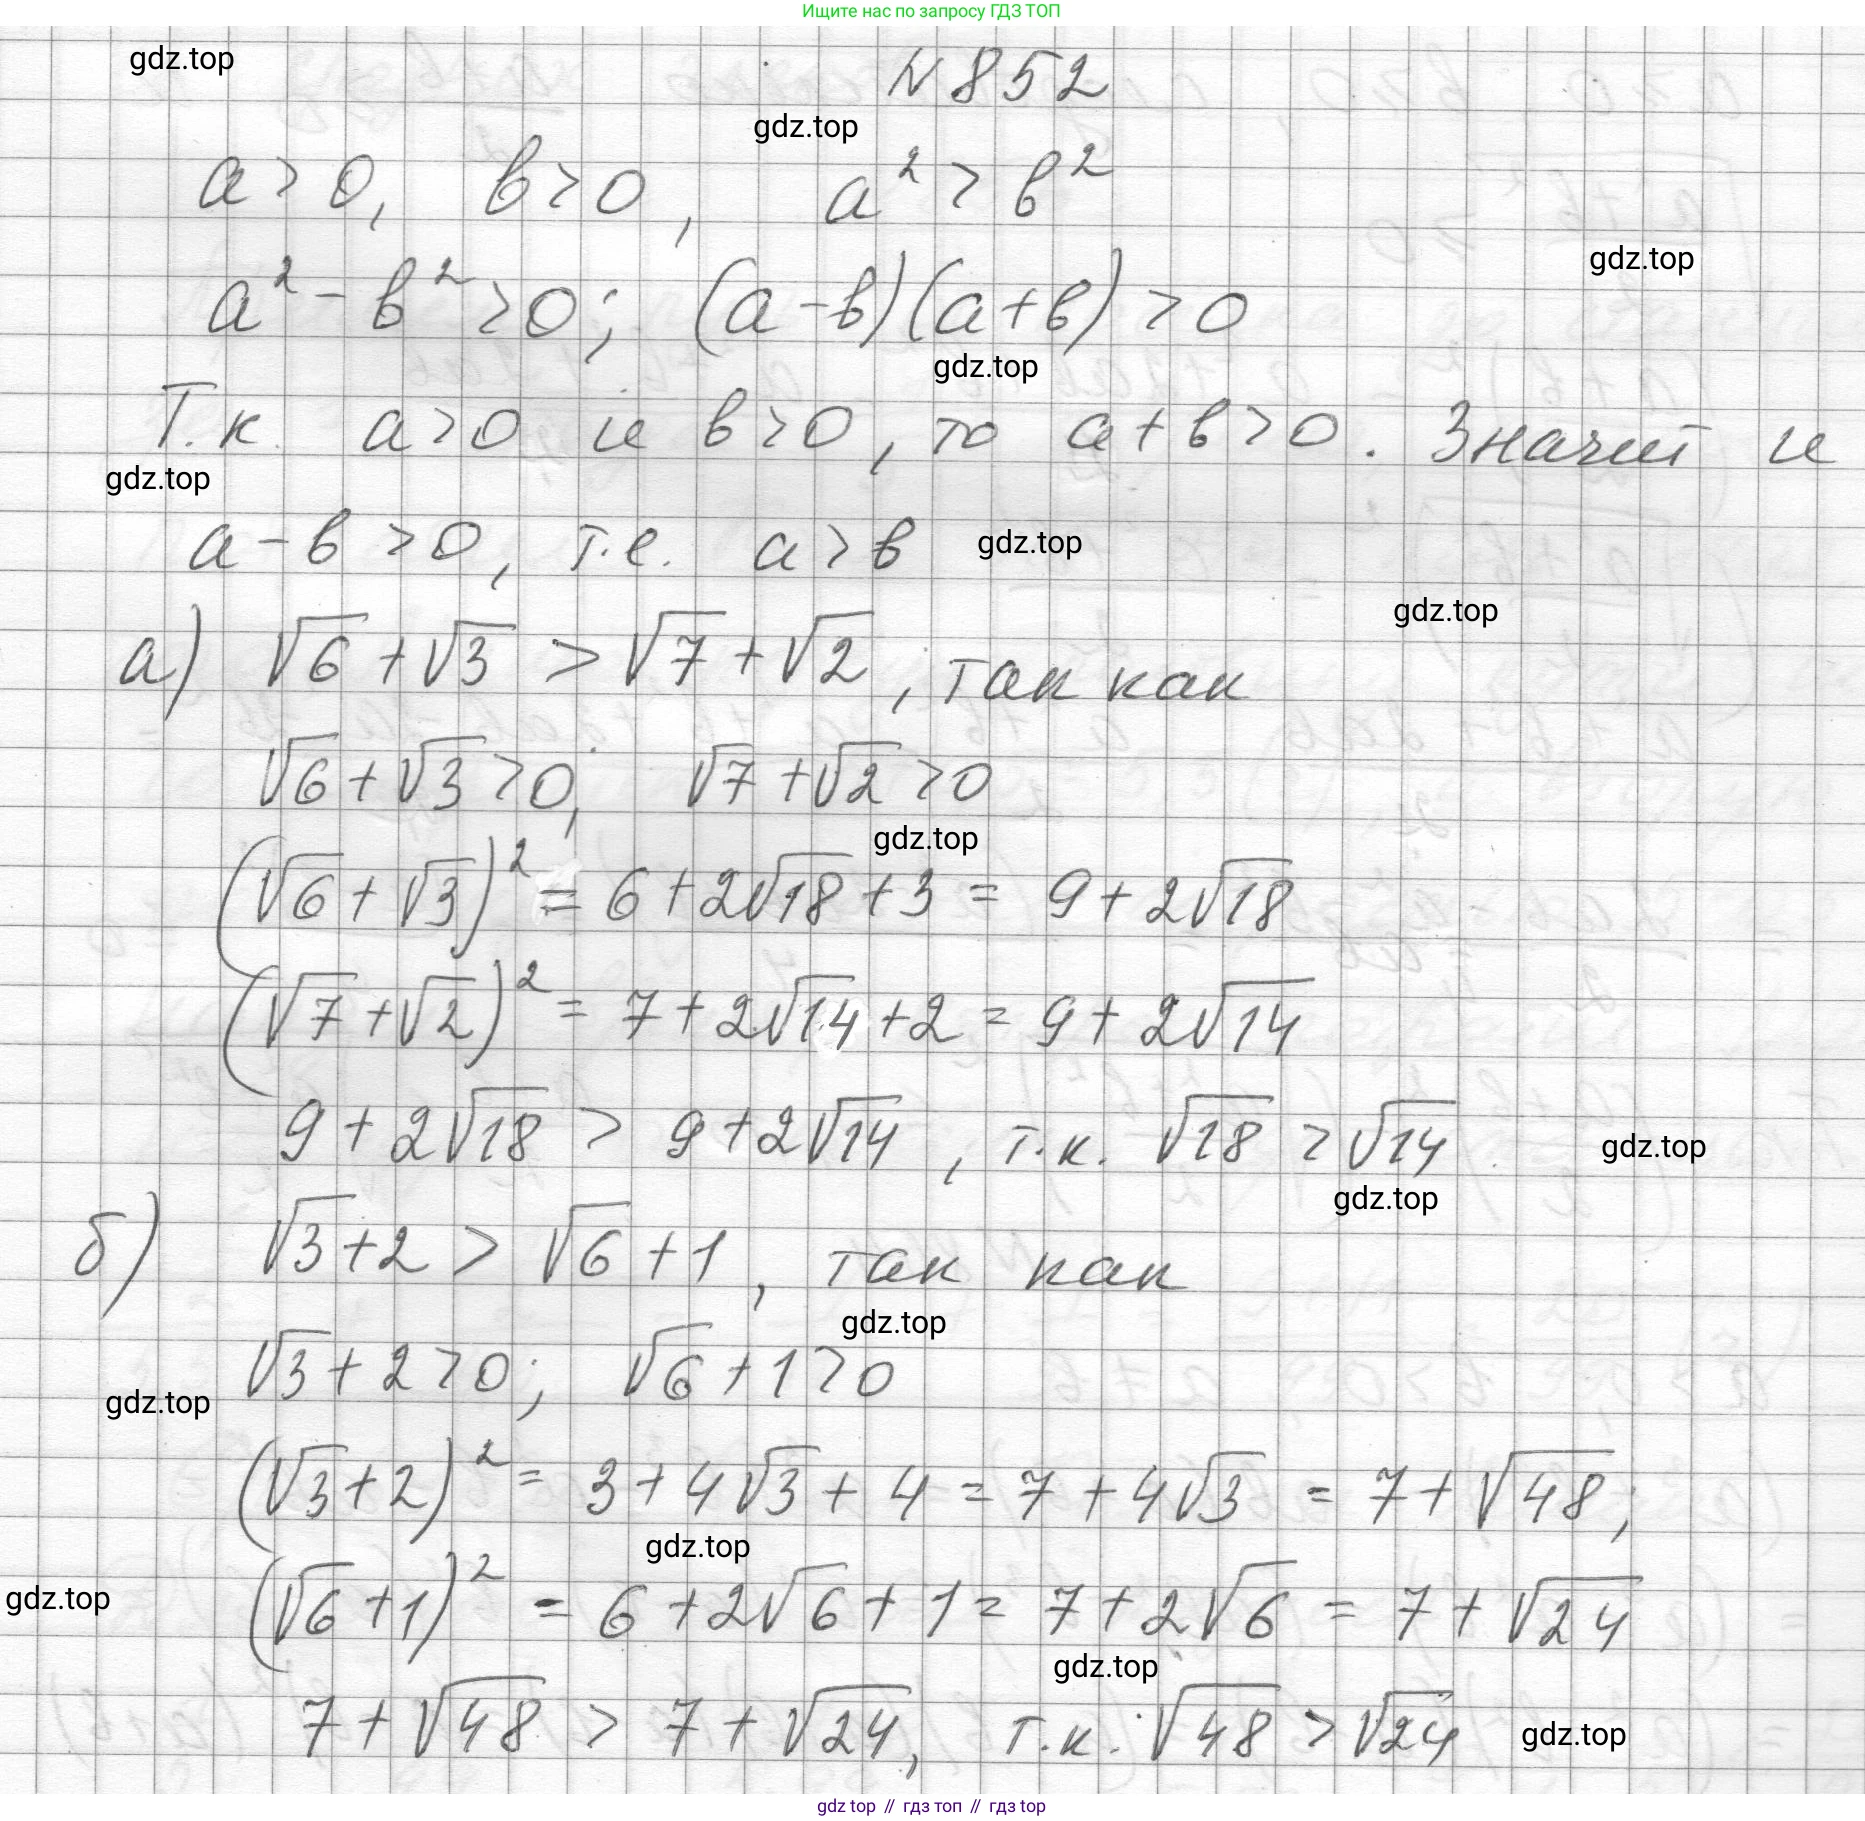 Ищите нас по запросу ГДЗ ТОП
gdz.top
N 852
gdz.top
a > 0, b > 0, a² > b²
gdz.top
a² - b² > 0; (a - b)(a + b) > 0
gdz.top
Т.к. a > 0 и b > 0, то a + b > 0. Значит и
gdz.top
a - b > 0, т.е. a > b
gdz.top
gdz.top
а) √6 + √3 > √7 + √2, так как
√6 + √3 > 0; √7 + √2 > 0
gdz.top
(√6 + √3)² = 6 + 2√18 + 3 = 9 + 2√18
(√7 + √2)² = 7 + 2√14 + 2 = 9 + 2√14
9 + 2√18 > 9 + 2√14, т.к. √18 > √14
gdz.top
gdz.top
б) √3 + 2 > √6 + 1, так как
gdz.top
√3 + 2 > 0; √6 + 1 > 0
gdz.top
(√3 + 2)² = 3 + 4√3 + 4 = 7 + 4√3 = 7 + √48;
gdz.top
gdz.top
(√6 + 1)² = 6 + 2√6 + 1 = 7 + 2√6 = 7 + √24
gdz.top
7 + √48 > 7 + √24, т.к. √48 > √24
gdz.top
gdz top // гдз топ // гдз top